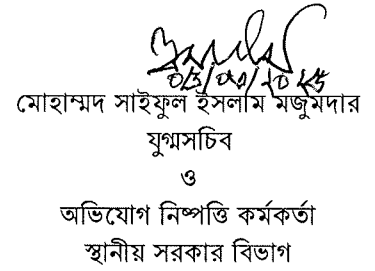 মোহাম্মদ সাইফুল ইসলাম মজুমদার
যুগ্মসচিব
ও
অভিযোগ নিষ্পত্তি কর্মকর্তা
স্থানীয় সরকার বিভাগ